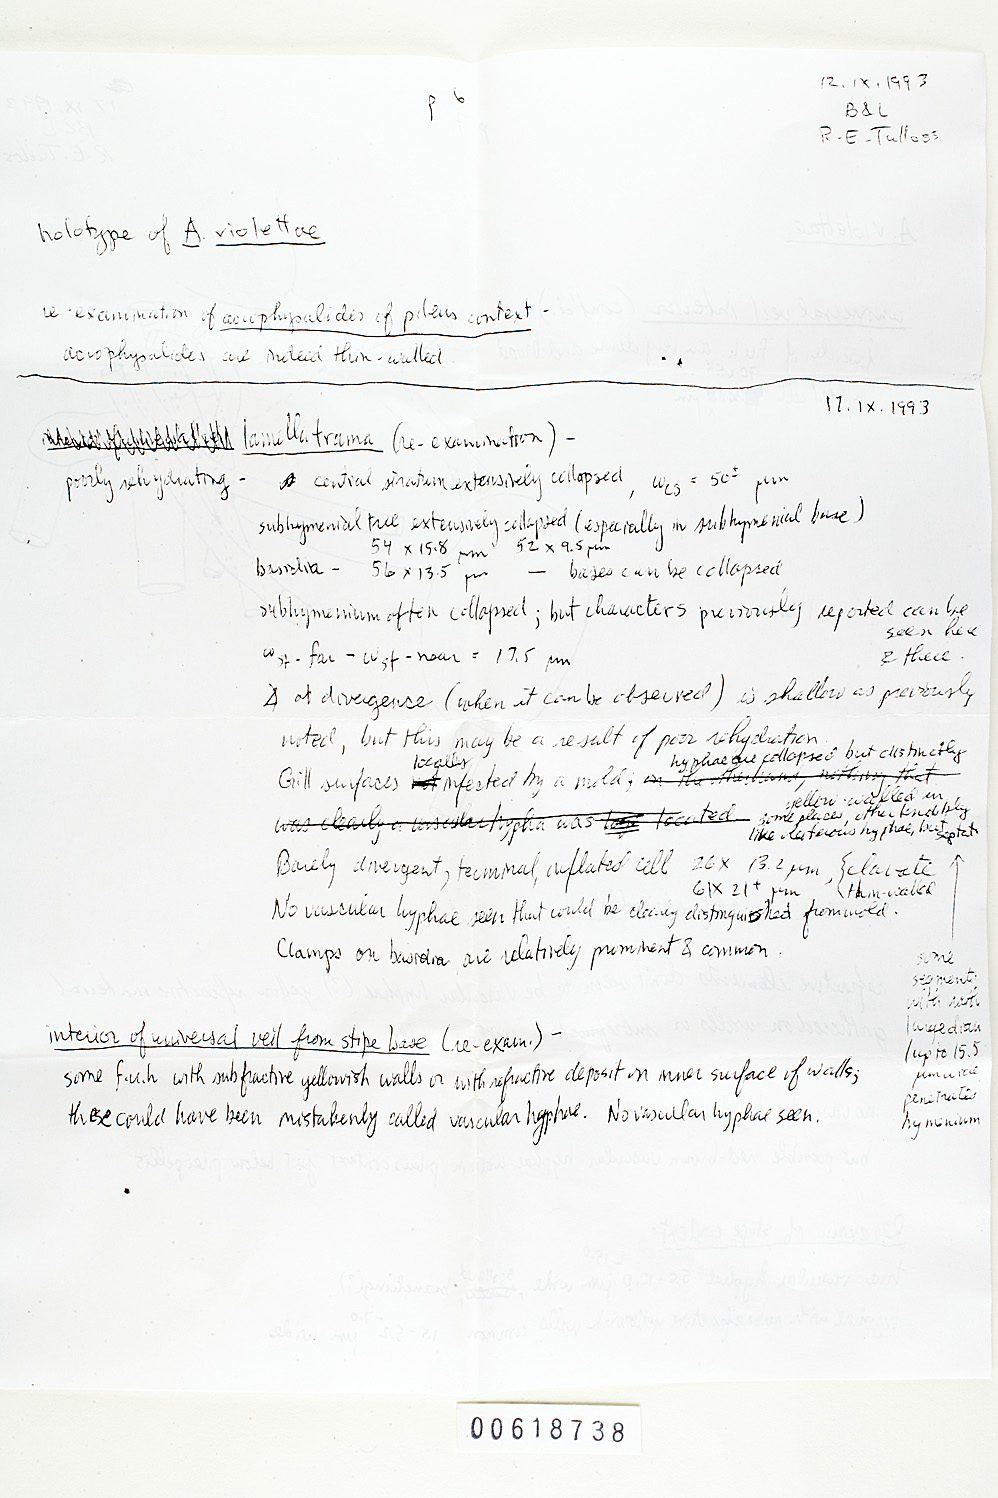 p 6
12.IX.1993
B&L
R.E.Tulloss
holotype of A. violettae
re-examination of acrophysalides of pileus context -
acrophysalides are indeed thin-walled.
12.IX.1993
lamella trama (re-examination) -
poorly rehydrating - central stratum extensively collapsed, wcs = 50± µm
subhymenial tree extensively collapsed (especially in subhymenial base)
54 x 15.8 µm 52 x 9.5 µm
basidia - 56 x 13.5 µm — bases can be collapsed
subhymenium often collapsed; but characters previously reported can be
seen here
& there.
wst-far - wst-near = 17.5 µm
∠ of divergence (when it can be observed) is shallow as previously
noted, but this may be a result of poor rehydration.
locally hyphae are collapsed but distinctly
Gill surfaces infested by a mold; in the specimens, nothing that
yellow-walled in
was clearly a vascular hypha was located some places, other tendibly
like oleiferous hyphae, but septate
Barely divergent, terminal, inflated cell 26 x 13.2 µm, {clavate
61 x 21+ µm (thin-walled
No vascular hyphae seen that could be clearly distinguished from mold.
Clamps on basidia are relatively prominent & common.
some
segments
with
large diam
(up to 15.5
µm wide
penetrates
hymenium
interior of universal veil from stipe base (re-exam.) -
some f.u.h with subrefractive yellowish walls or with refractive deposit on inner surface of walls;
these could have been mistakenly called vascular hyphae. No vascular hyphae seen.
00618738